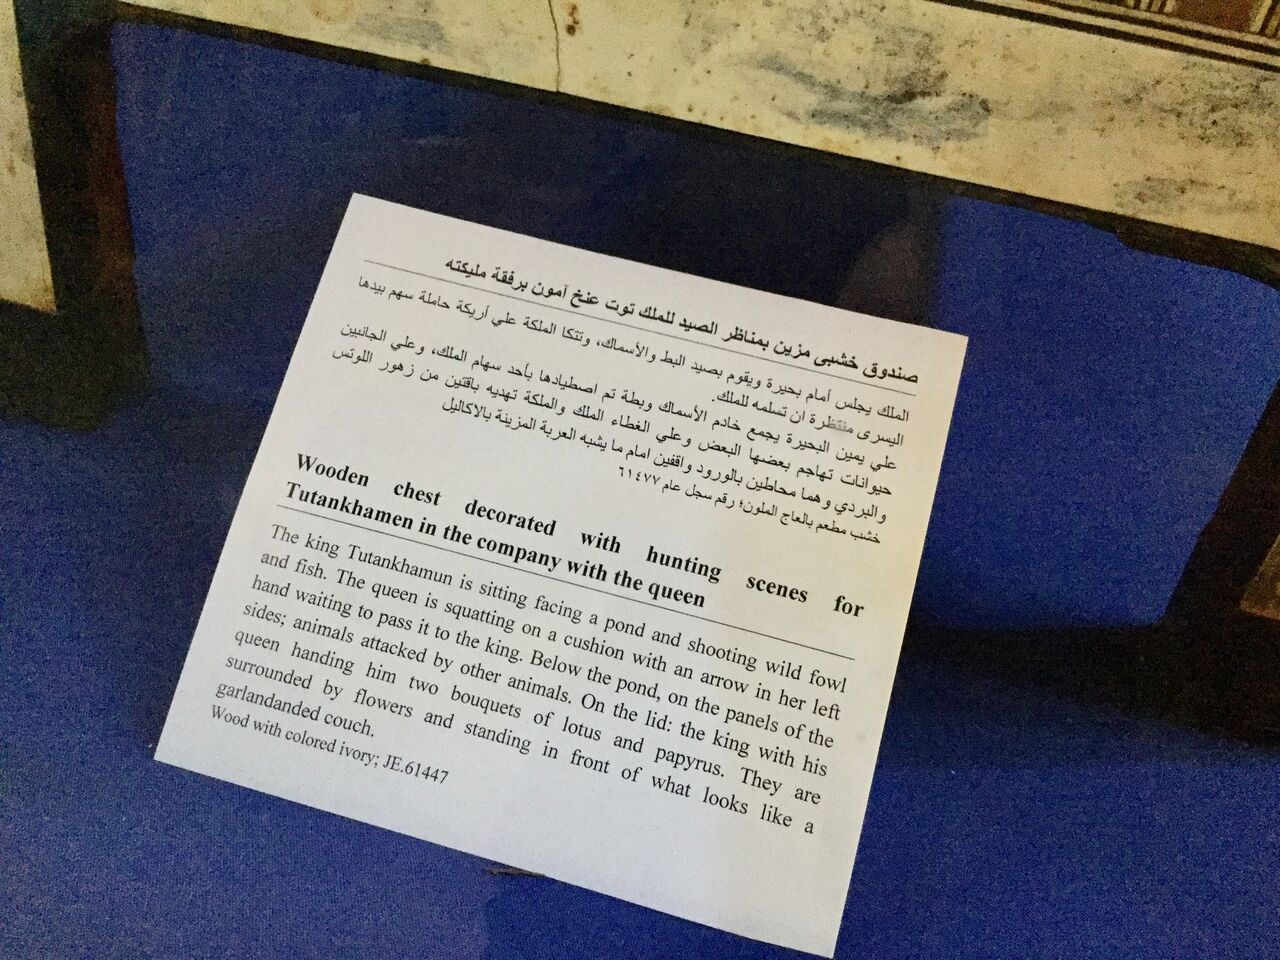 صندوق خشبى مزين بمناظر الصيد للملك توت عنخ آمون برفقة مليكته
الملك يجلس أمام بحيرة ويقوم بصيد البط والأسماك، وتتكا الملكة علي أريكة حاملة سهم بيدها
اليسرى منتظرة ان تسلمه للملك.
علي يمين البحيرة يجمع خادم الأسماك وبطة تم اصطيادها بأحد سهام الملك، وعلي الجانبين
حيوانات تهاجم بعضها البعض وعلي الغطاء الملك والملكة تهديه باقتين من زهور اللوتس
والبردي وهما محاطين بالورود واقفين امام ما يشبه العربة المزينة بالاكاليل
خشب مطعم بالعاج الملون؛ رقم سجل عام ٦١٤٧٧
Wooden chest decorated with hunting scenes for
Tutankhamen in the company with the queen
The king Tutankhamun is sitting facing a pond and shooting wild fowl
and fish. The queen is squatting on a cushion with an arrow in her left
hand waiting to pass it to the king. Below the pond, on the panels of the
sides; animals attacked by other animals. On the lid: the king with his
queen handing him two bouquets of lotus and papyrus. They are
surrounded by flowers and standing in front of what looks like a
garlandanded couch.
Wood with colored ivory; JE.61447